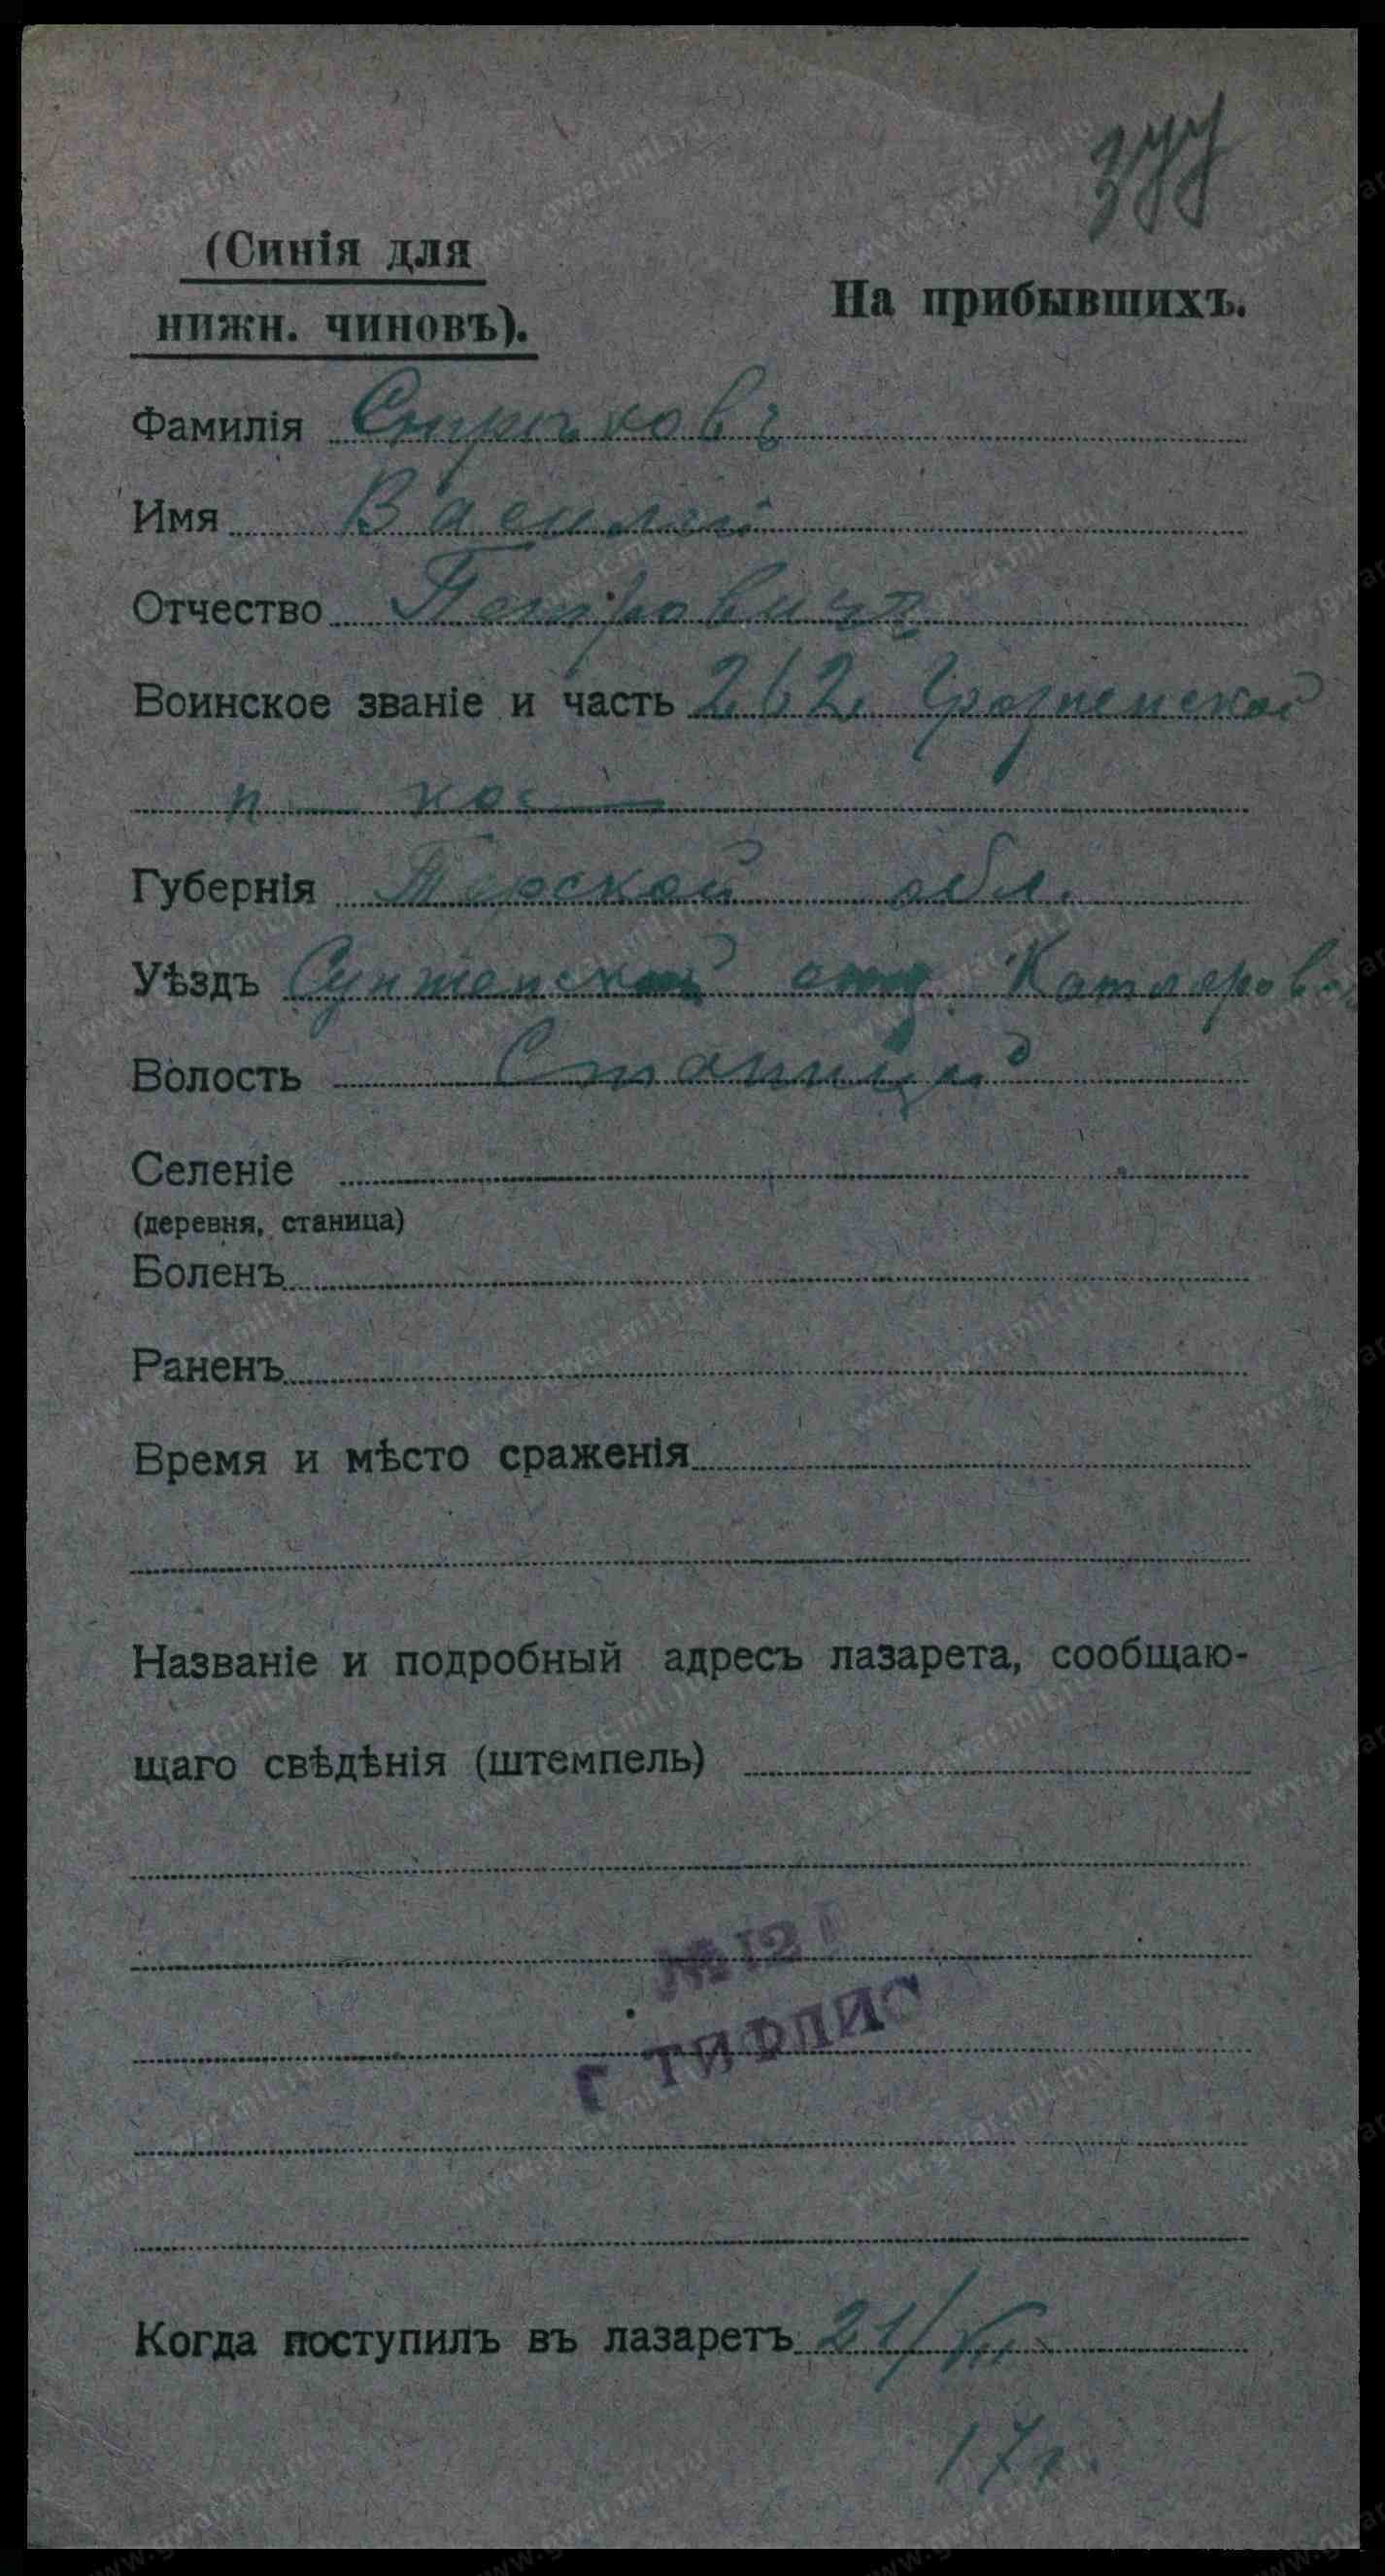 (Синія для
нижн. чиновъ).
На прибывшихъ.
Фамилія
Имя Василій
Отчество Петровичъ
Воинское званіе и часть 262 Грозненской
Губернія Терской обл.
Уѣздъ Сунженской отд
Волость Станицы
Селеніе
(деревня, станица)
Боленъ
Раненъ
Время и мѣсто сраженія
Названіе и подробный адресъ лазарета, сообщаю-
щаго свѣдѣнія (штемпель)
№ 121
Г ТИФЛИС
Когда поступилъ въ лазаретъ 21/
17 г.